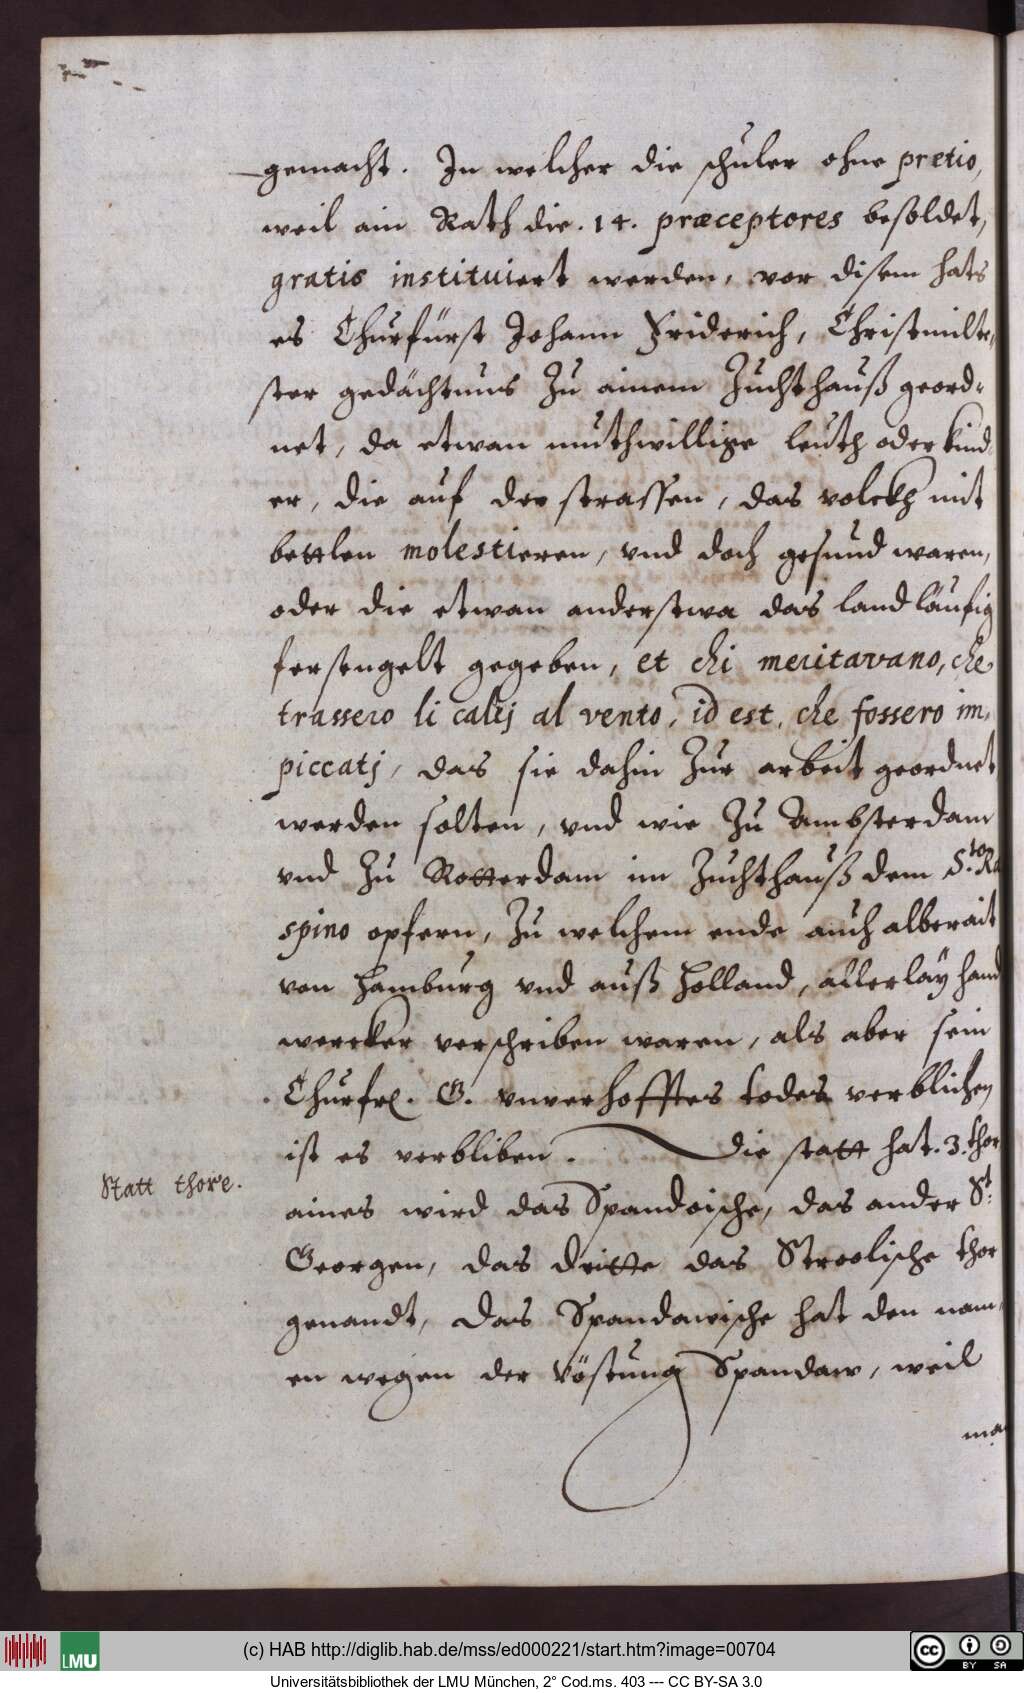 gemacht. In welcher die schuler ohne pretio,
weil ain Rath die .14. præceptores besoldet,
gratis instituiert werden, vor disem hats
es Churfürst Johann Friderich, Christmilte-
ster gedächtnus zu ainem Zuchthauß geord-
net, da etwan muthwillige leuth oder kind-
er, die auf der strassen, das volckh mit
bettlen molestieren, vnd doch gesund waren,
oder die etwan anderstwa das landläufig
fersengelt gegeben, et chi meritavano, che
trassero li calij al vento, id est, che fossero im-
piccatj, das sie dahin zur arbeit geordnet
werden solten, vnd wie zu Ambsterdam
vnd zu Rotterdam im Zuchthauß dem S.to Ra
spino opfern, zu welchem ende auch alberait
von Hamburg vnd auß Holland, allerlaÿ hand
wercker verschriben waren, als aber sein
Churfrl. G. vnverhofftes todes verblichen
ist es verbliben. Die statt hat .3. thor
Statt thore.
aines wird das Spandoische, das ander St.
Georgen, das dritte das Stroolische thor
genandt, Das Spandawische hat den nam-
en wegen der vöstung Spandaw, weil
man
(c) HAB http://diglib.hab.de/mss/ed000221/start.htm?image=00704
LMU
cc BY SA
Universitätsbibliothek der LMU München, 2° Cod.ms. 403 --- CC BY-SA 3.0